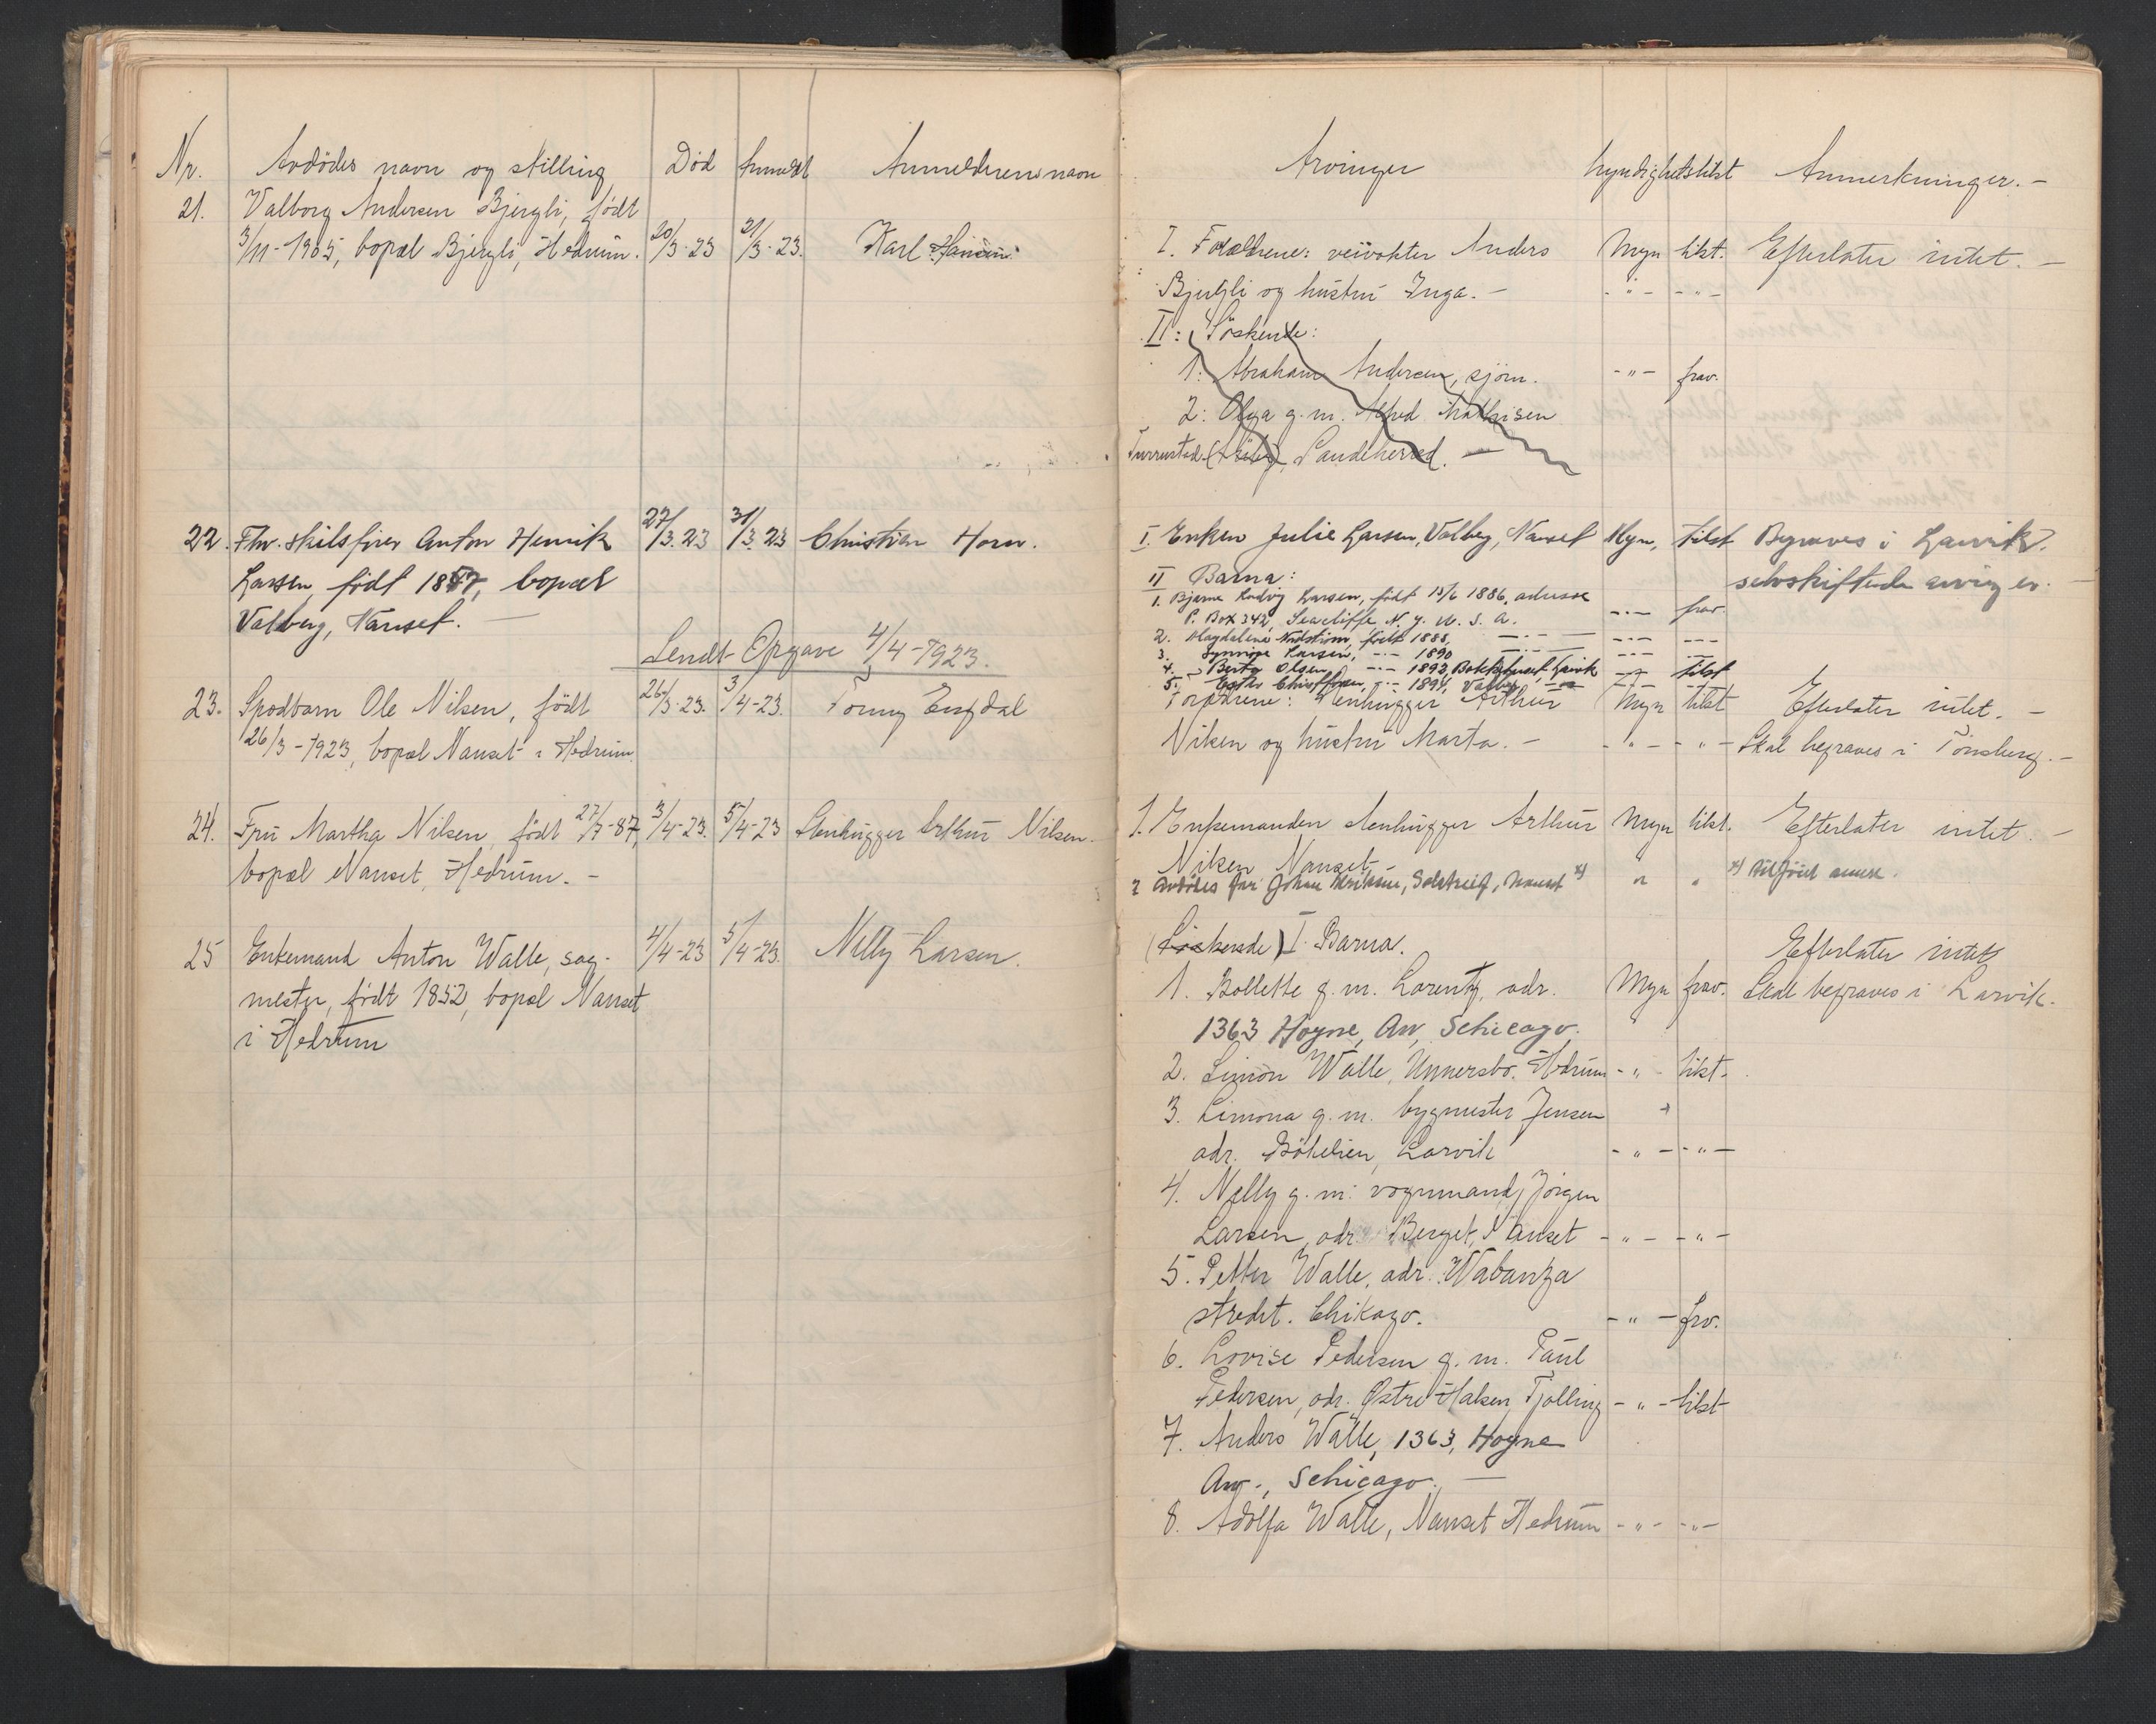 Nr. Avdödes navn og stilling Död Anmeldt Anmelderens navn
21. Valborg Andersen Bjergli, födt
3/11-1905, bopæl Bjergli, Hedrum. 20/3-23 21/3-23. Karl Hansen
22. Fhv. skibsfører Anton Henrik 27/3.23 31/3.23 Christian Horn.
Larsen, født 1857, bopæl
Valberg, Nanset. —
Sendt Opgave 4/4-1923.
23. Spædbarn Ole Nilsen, födt 26/3-23. 3/4-23. Tonny Engdal
26/3-1923, bopæl Nanset i Hedrum.
24. Fru Martha Nilsen, födt 27/7-87, 3/4-23. 5/4-23 Stenhugger Arthur Nilsen.
bopæl Nanset, Hedrum. -
25 Enkemand Anton Walle, sag- 4/4-23 5/4-23. Nelly Larsen.
mester, födt 1852, bopæl Nanset
i Hedrum
Arvinger Myndighet tilst Anmerkninger. -
I. Forældrene: veivokter Anders Myn tilst. Efterlater intet. -
Bjergli og hustru Inga. - - " - - " -
II: Söskende:
1: Abraham Andersen, sjöm. - " - frav.
2: Olga g. m. Alfred Mathisen
Furustad, Sandeherred. -
I. Enken Julie Larsen, Valberg, Nanset Myn, tilst Begraves i Larvik.
II Barna: selvskiftende arving er. -
1. Bjarne Ludvig Larsen, født 15/6 1886, adresse
P. Box 342, Seacliffe N. Y. U. S. A. -"- frav.
2. Magdalene Nordstrøm, født 1888, -"- -"- ---
3. Synnøve Larsen, -"- 1890 -"- -"- ---
4. Berta Olsen, -"- 1893, Larvik -"- tilst
5. Esther Christffersen, -"- 1894, Valberg -"- -"-
Forældrene: Stenhugger Arthur Myn tilst Efterlater intet. -
Nilsen og hustru Marta. - - " - - " - Skal begraves i Tönsberg. -
1. Enkemanden stenhugger Arthur Myn tilst. Efterlater intet. -
Nilsen Nanset -
2 Avdödes far Johan Eriksen, Nanset x) " " x) tilföiet senere.
(Söskende) I. Barna. Efterlater intet
1. Bollette g. m. Lorentz, adr. Myn frav. Skal begraves i Larvik.
1363 Hoyne, Av, Schicago.
2. Simon Walle, Unnersbo. Hedrum - " - tilst.
3. Simona g. m. bygmester Jensen
adr. Bökelien, Larvik - " - - " -
4. Nelly g. m. vognmand Jörgen
Larsen, adr. Berget, Nanset - " - - " -
5. Petter Walle, adr. Wabanza
stredt. Chikago. - " - frv.
6. Lovise Pedersen g. m. Paul
Pedersen, adr. Østre Halsen, Tjölling - " - tilst
7. Anders Walle, 1363, Hoyne
Av., Schicago. -
8. Adolfa Walle, Nanset Hedrum - " - - " -